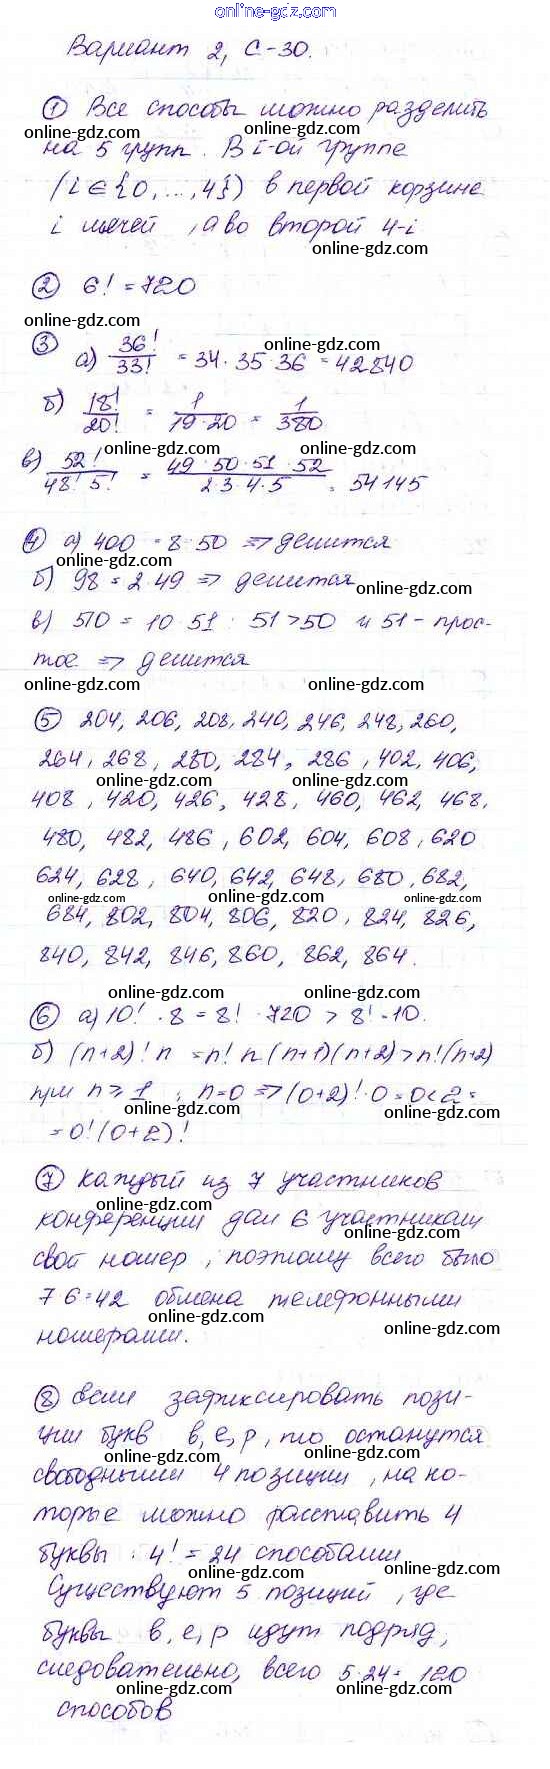 online-gdz.com
Вариант 2, С-30.
① Все способы можно разделить
online-gdz.com online-gdz.com
на 5 групп. В i-ой группе
(i ∈ {0, ..., 4}) в первой корзине
i мячей, а во второй 4-i
online-gdz.com
② 6! = 720
online-gdz.com
③ а) 36!/33! = 34·35·36 = 42840
online-gdz.com
б) 18!/20! = 1/(19·20) = 1/380
online-gdz.com online-gdz.com
в) 52!/(48! 5!) = (49·50·51·52)/(2·3·4·5) = 54145
online-gdz.com
④ а) 400 = 8·50 => делится
online-gdz.com
б) 98 = 2·49 => делится
online-gdz.com
в) 510 = 10·51 : 51>50 и 51 - прос-
тое => делится
online-gdz.com online-gdz.com
⑤ 204, 206, 208, 240, 246, 248, 260,
264, 268, 280, 284, 286, 402, 406,
online-gdz.com online-gdz.com
408, 420, 426, 428, 460, 462, 468,
480, 482, 486, 602, 604, 608, 620
624, 628, 640, 642, 648, 680, 682,
online-gdz.com online-gdz.com online-gdz.com
684, 802, 804, 806, 820, 824, 826,
840, 842, 846, 860, 862, 864.
online-gdz.com online-gdz.com
⑥ а) 10!·8 = 8!·720 > 8!·10.
online-gdz.com
б) (n+2)! n = n! n (n+1)(n+2) > n!(n+2)
при n ⩾ 1 ; n=0 => (0+2)!·0 = 0 < 2 =
online-gdz.com online-gdz.com
= 0!(0+2)!
⑦ Каждый из 7 участников
online-gdz.com online-gdz.com
конференции дал 6 участникам
online-gdz.com
свой номер, поэтому всего было
7·6=42 обмена телефонными
online-gdz.com
номерами.
⑧ если зафиксировать пози-
online-gdz.com
ции букв в, е, р, то останутся
online-gdz.com online-gdz.com
свободными 4 позиции, на ко-
торые можно расставить 4
online-gdz.com
буквы : 4! = 24 способами
online-gdz.com
Существуют 5 позиций, где
буквы в, е, р идут подряд,
online-gdz.com
следовательно, всего 5·24 = 120
online-gdz.com online-gdz.com
способов